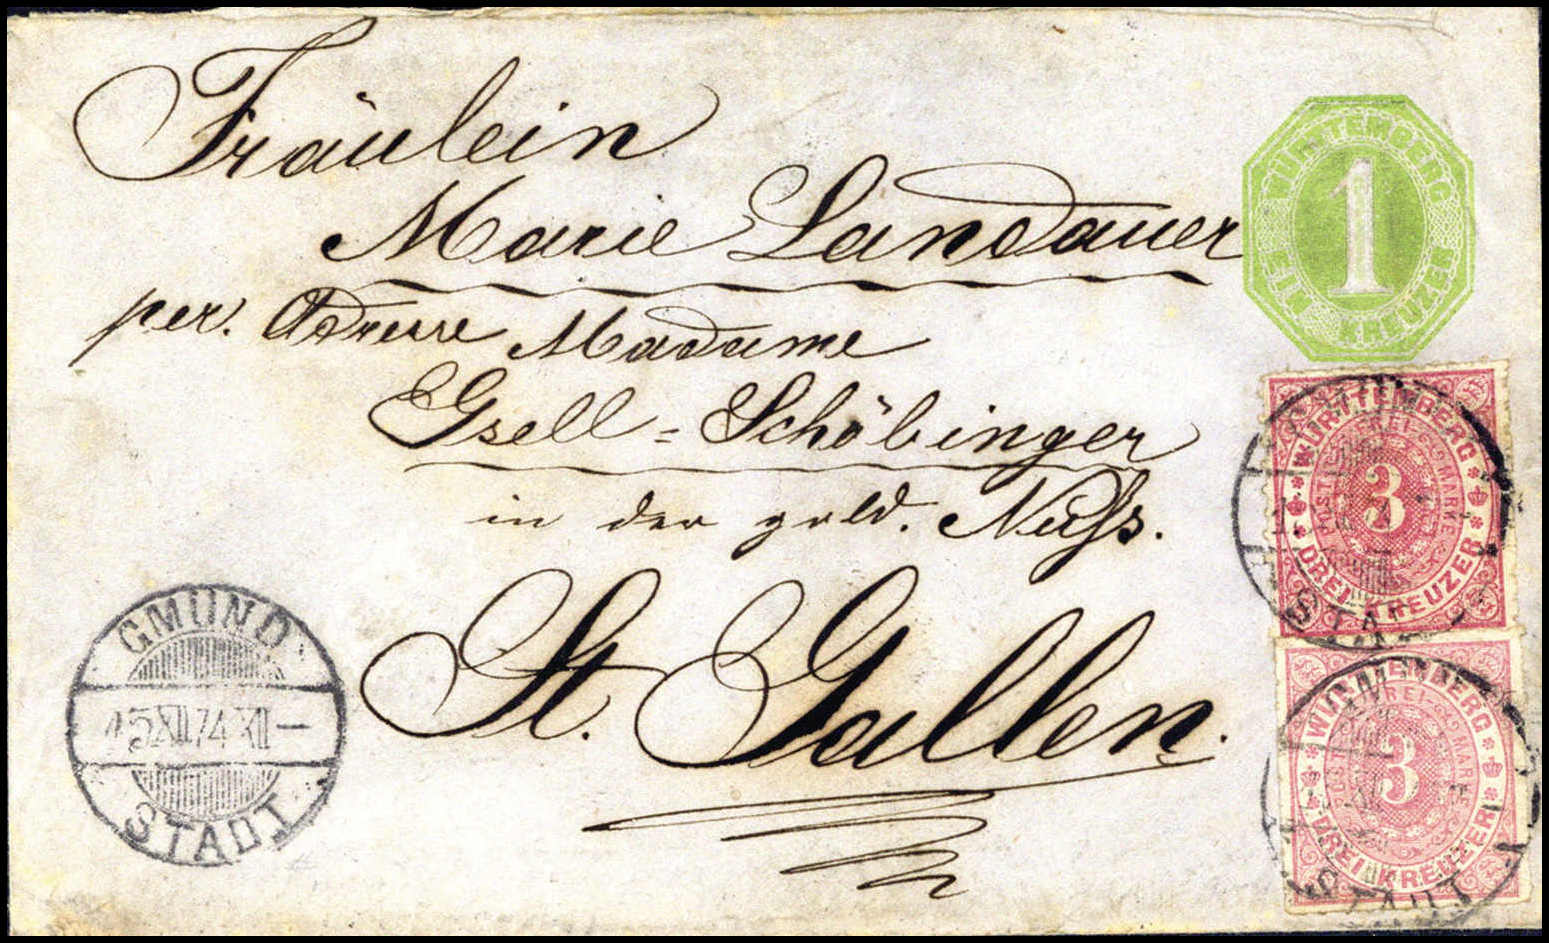 Fräulein
Marie Landauer
per. Adresse Madame
Gsell=Schöbinger
in der gold. Nuss.
St. Gallen.
WÜRTTEMBERG
1
EIN KREUZER
WÜRTTEMBERG
3
DREI KREUZER
WÜRTTEMBERG
3
DREI KREUZER
GMÜND
15 XII 74 XII
STADT